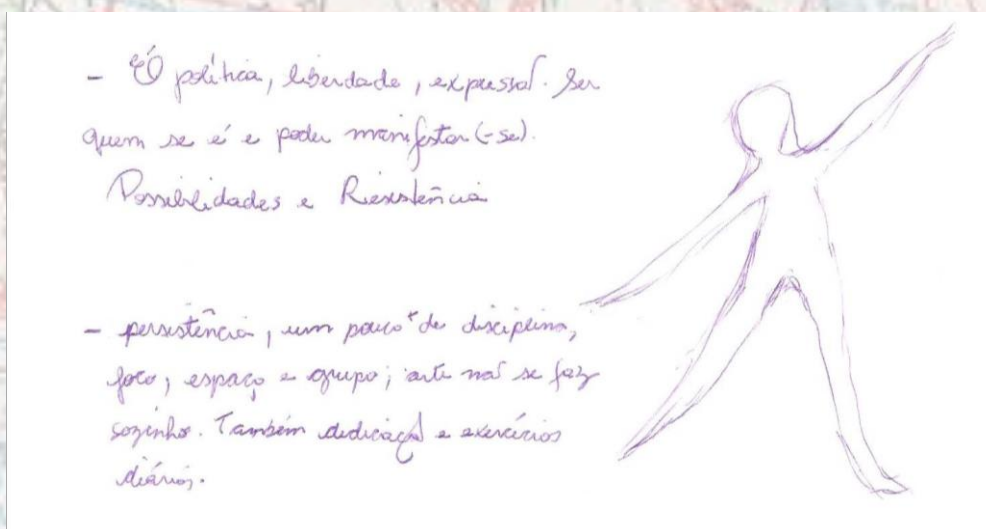 - É política, liberdade, expressão. Ser
quem se é e poder manifestar(-se).
Possibilidades e Resistência
- persistência, um pouco + de disciplina,
foco, espaço e grupo; arte não se faz
sozinho. Também dedicação e exercícios
diários.